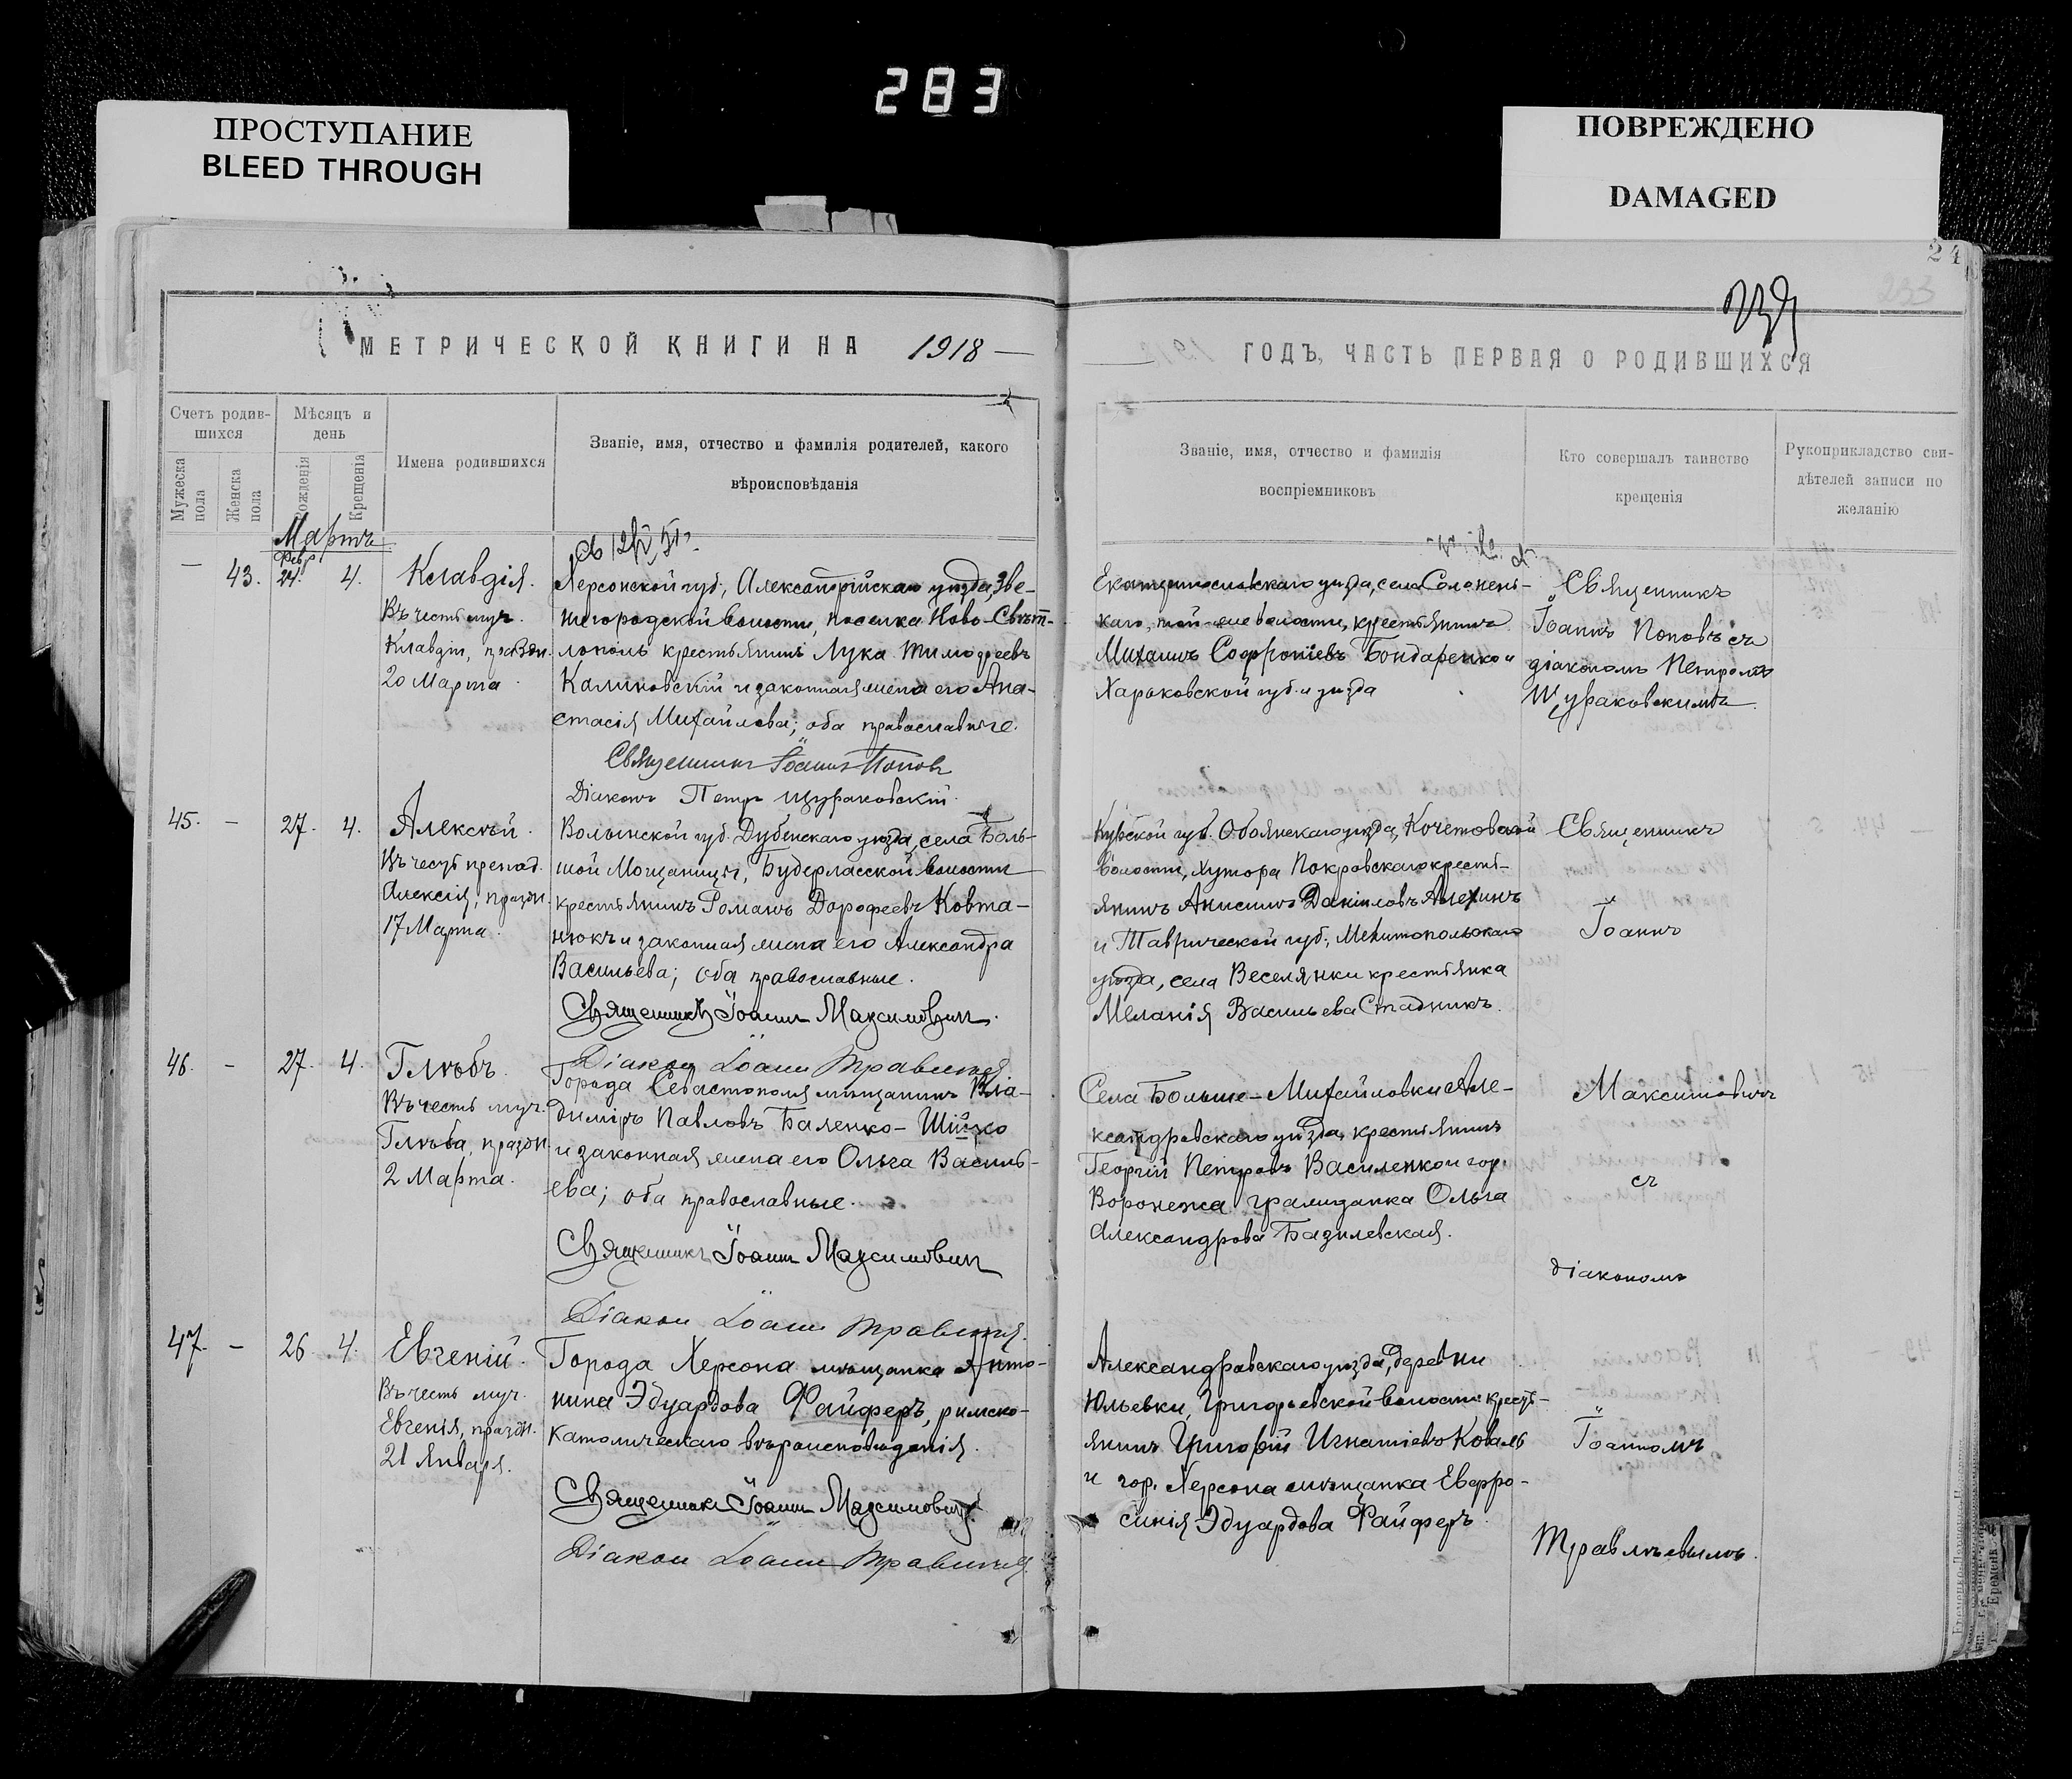 283
ПРОСТУПАНИЕ
BLEED THROUGH
ПОВРЕЖДЕНО
DAMAGED
24
233
МЕТРИЧЕСКОЙ КНИГИ НА 1918
Счетъ родив-
шихся
Мужеска
пола
Женска
пола
Мѣсяцъ и
день
Рожденія
Крещенія
Имена родившихся
Званіе, имя, отчество и фамилія родителей, какого
вѣроисповѣданія
Мартъ
— 43. Фев. 24. 4.
Клавдія.
Въ честь муч.
Клавдіи, праздн.
20 Марта
Херсонской губ., Александрійскаго уѣзда, Зве-
нигородской волости, поселка Ново-Свѣт-
лополь крестьянинъ Лука Тимофеевъ
Калиновскій и законная жена его Ана-
стасія Михайлова; оба православные.
Священникъ Іоаннъ Поповъ
Діаконъ Петръ Щураковскій.
45. — 27. 4.
Алексѣй.
Въ честь препод.
Алексія, праздн.
17 Марта.
Волынской губ. Дубенскаго уѣзда, села Боль-
шой Мощаницы, Будеражской волости
крестьянинъ Романъ Дорофеевъ Ковта-
нюкъ и законная жена его Александра
Васильева; оба православные.
Священникъ Іоаннъ Максимовичъ.
Діакон Іоанн
46. — 27. 4.
Глѣбъ.
Въ честь муч.
Глѣба, праздн.
2 Марта.
Города Севастополя мѣщанинъ Вла-
диміръ Павловъ Баленко-Шишко
и законная жена его Ольга Василь-
ева; оба православные.
Священникъ Іоаннъ Максимович
Діакон Іоанн
47. — 26. 4.
Евгеній.
Въ честь муч.
Евгенія, праздн.
21 Января.
Города Херсона мѣщанка Анто-
нина Эдуардова Файферъ, римско-
католическаго вѣроисповѣданія.
Священник Іоанн Максимович
Діакон Іоанн
ГОДЪ, ЧАСТЬ ПЕРВАЯ О РОДИВШИХСЯ
Званіе, имя, отчество и фамилія
воспріемниковъ
Кто совершалъ таинство
крещенія
Рукоприкладство сви-
дѣтелей записи по
желанію
Екатеринославскаго уѣзда, села Солонень-
каго, той-же волости, крестьянинъ
Михаилъ Софроніевъ Бондаренко и
Харьковской губ. и уѣзда
Священникъ
Іоаннъ Поповъ съ
діакономъ Петромъ
Щураковскимъ.
Курской губ. Обоянскаго уѣзда, Кочетовской
волости, хутора Покровскаго крестья-
янинъ Анисимъ Даніиловъ Алехинъ
и Таврической губ., Мелитопольскаго
уѣзда, села Веселянки крестьянка
Меланія Васильева Стадникъ.
Священникъ
Іоаннъ
Села Больше-Михайловки Але-
ксандровскаго уѣзда, крестьянинъ
Георгій Петровъ Василенко и гор.
Воронежа гражданка Ольга
Александрова Базилевская.
Максимовичъ
съ
діакономъ
Александровскаго уѣзда, деревни
Юльевки, Григорьевской волости крест-
янинъ Григорій Игнатіевъ Коваль
и гор. Херсона мѣщанка Евфро-
синія Эдуардова Файферъ.
Іоанномъ
Травлѣевымъ.